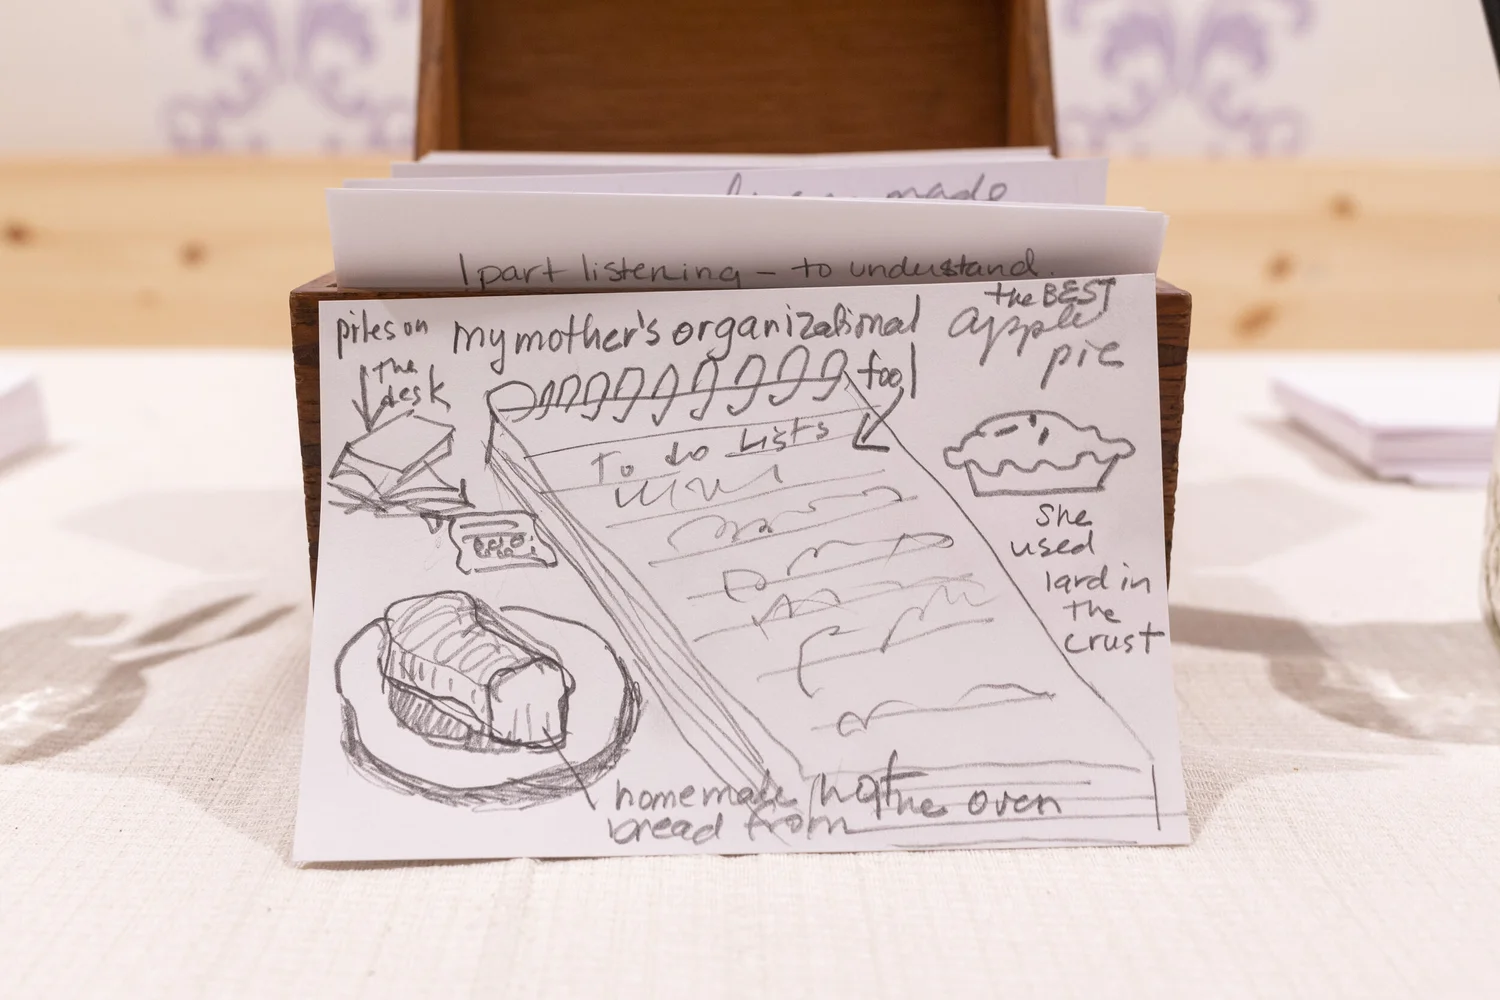 made
1 part listening – to understand.
piles on
the
desk
my mother's organizational
tool
the BEST
apple
pie
To do Lists
She
used
lard in
the
crust
homemade hot
bread from the oven